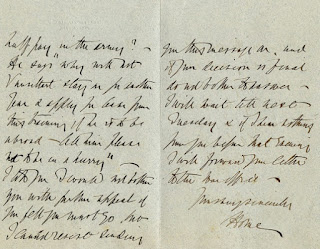 half pay "in the army? –
He says "why will not
Vincent stay on for another
year & apply for leave from
this training if he is to be
abroad – Ask him please
not to be in a hurry" –
I told you I would not bother
you with further appeal if
you felt you must go, but
I cannot resist sending
you this message on, and
if your decision is final
do not bother to answer –
I will wait till next
Tuesday & if I hear nothing
from you before that evening
I will forward your letter
to the War Office –
Yours very sincerely
Home